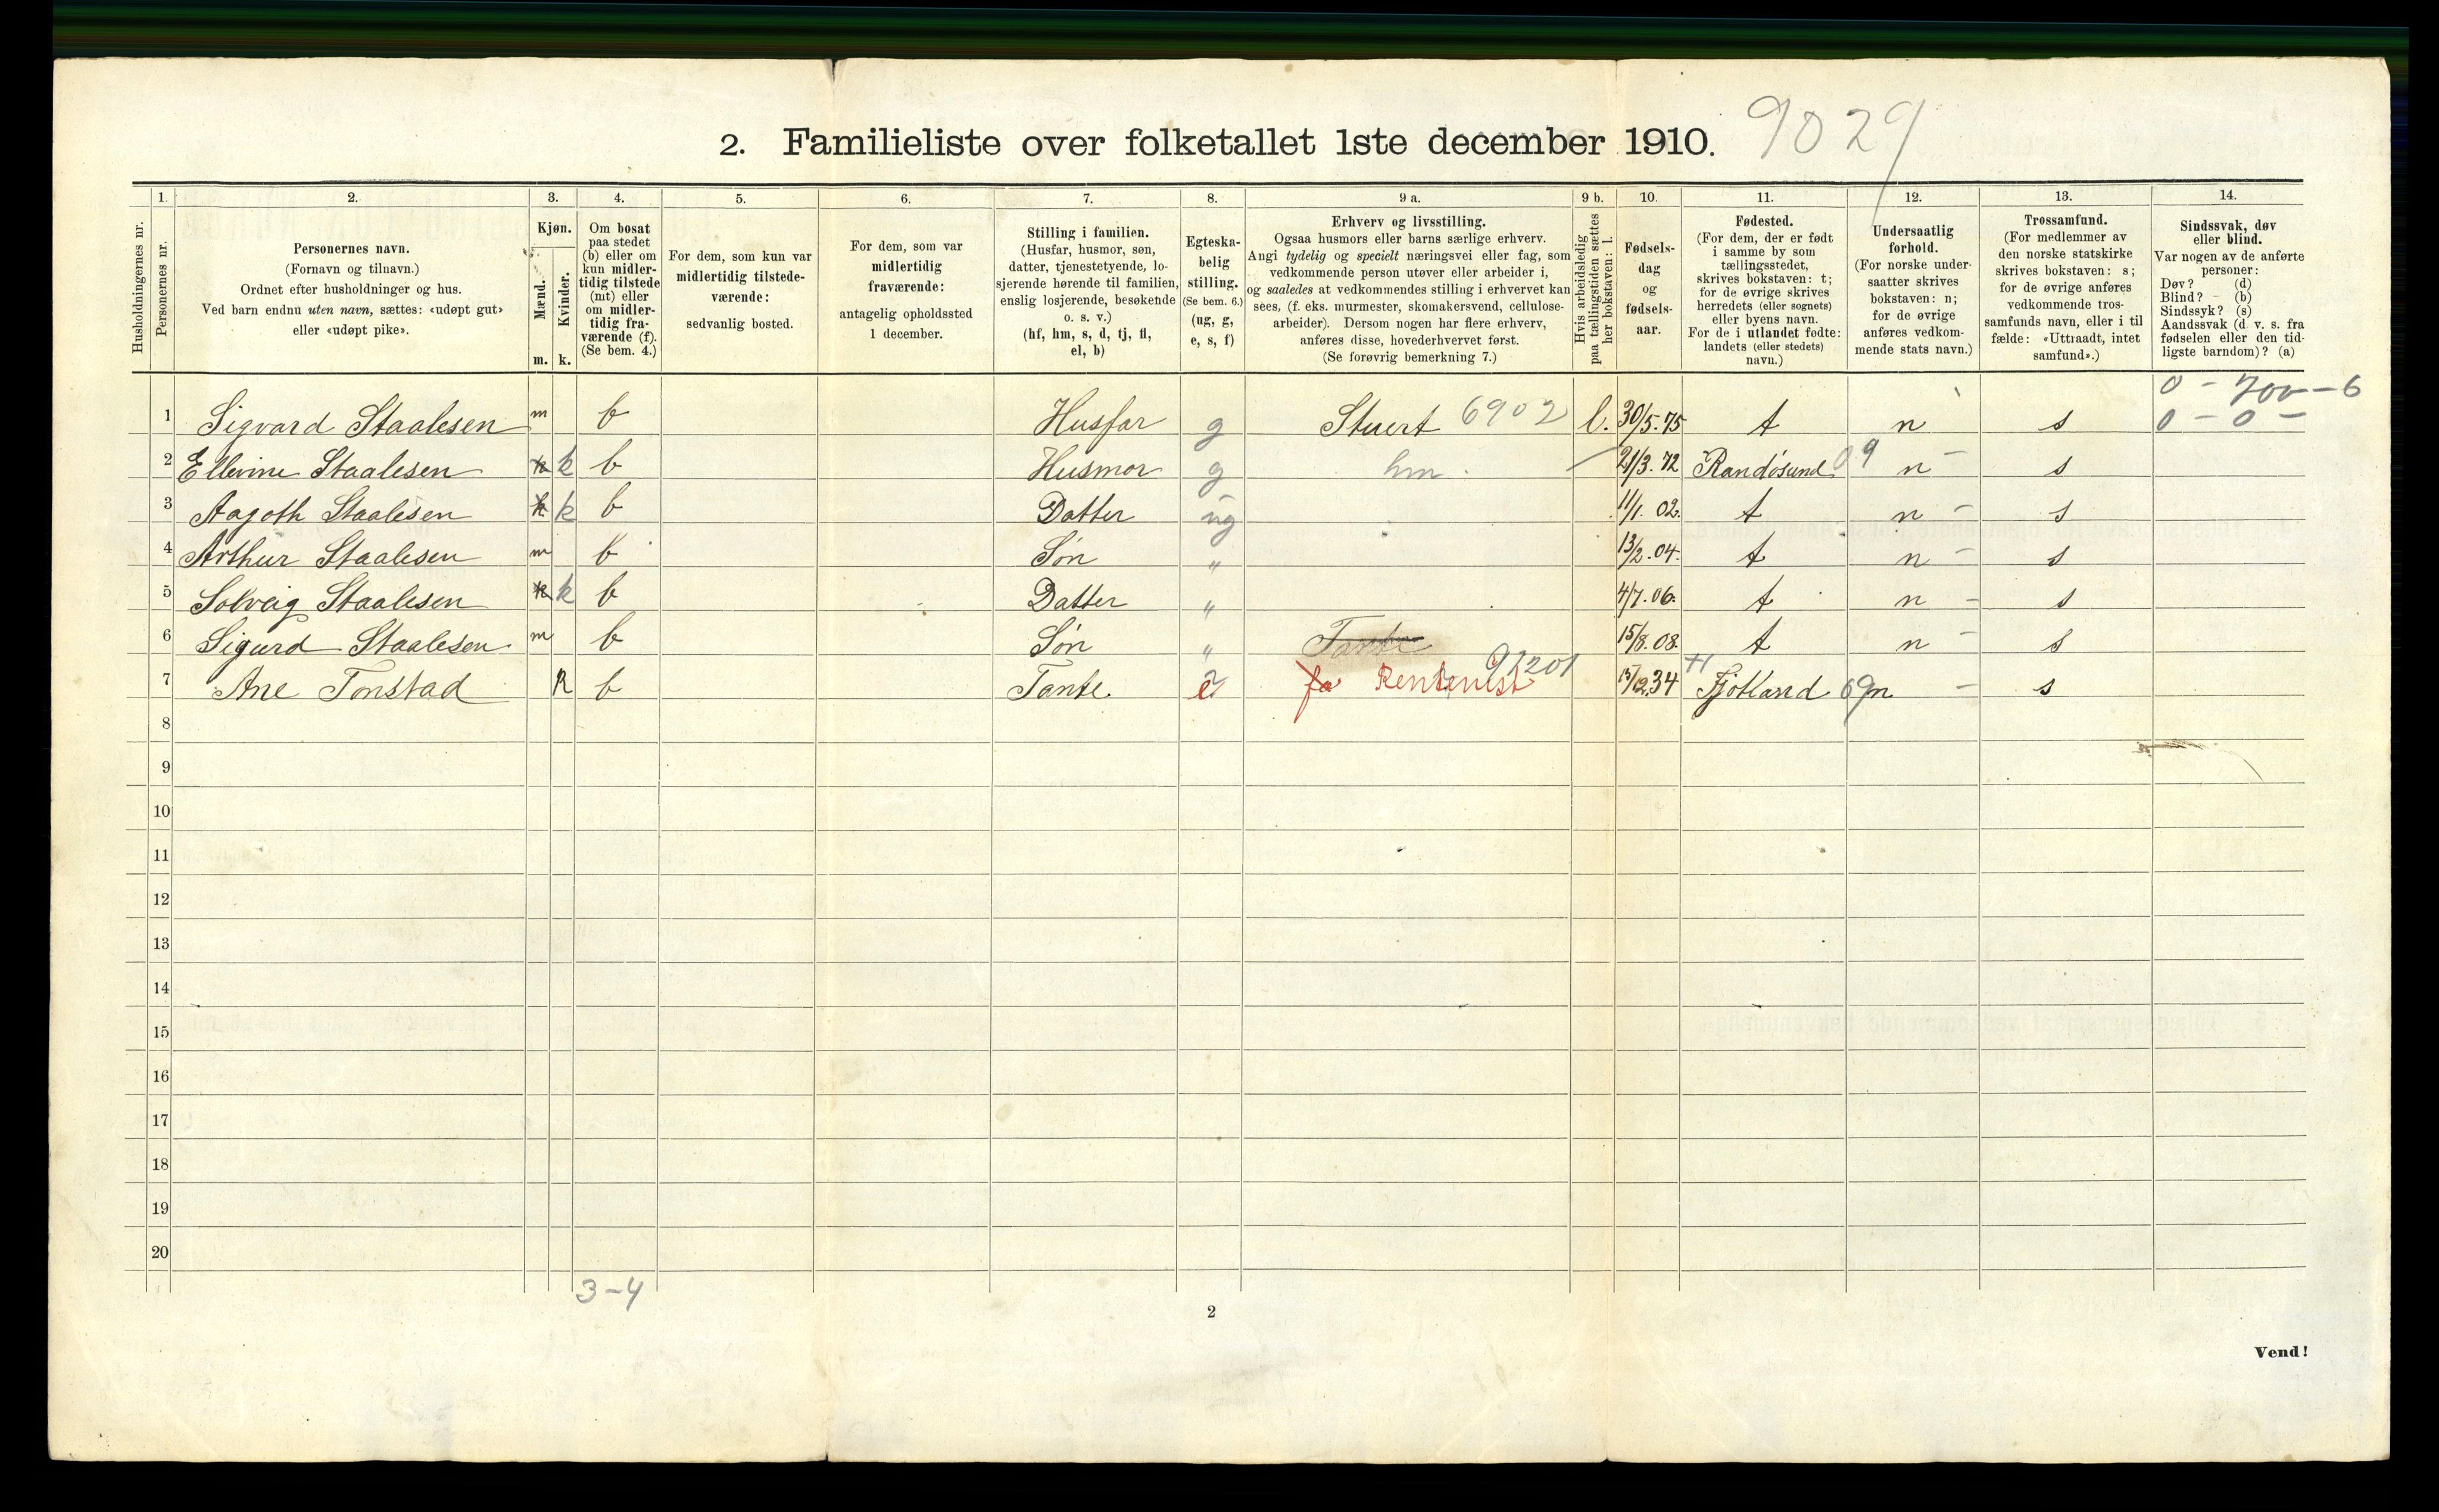 9029
2. Familieliste over folketallet 1ste december 1910.
1. 2. 3. 4. 5. 6. 7. 8. 9 a. 9 b. 10. 11. 12. 13. 14.
Husholdningernes nr.
Personernes nr.
Personernes navn.
(Fornavn og tilnavn.)
Ordnet efter husholdninger og hus.
Ved barn endnu uten navn, sættes: «udøpt gut»
eller «udøpt pike».
Kjøn.
Mænd.
Kvinder.
m. k.
Om bosat
paa stedet
(b) eller om
kun midler-
tidig tilstede
(mt) eller
om midler-
tidig fra-
værende (f).
(Se bem. 4.)
For dem, som kun var
midlertidig tilstede-
værende:
sedvanlig bosted.
For dem, som var
midlertidig
fraværende:
antagelig opholdssted
1 december.
Stilling i familien.
(Husfar, husmor, søn,
datter, tjenestetyende, lo-
sjerende hørende til familien,
enslig losjerende, besøkende
o. s. v.)
(hf, hm, s, d, tj, fl,
el, b)
Egteska-
belig
stilling.
(Se bem. 6.)
(ug, g,
e, s, f)
Erhverv og livsstilling.
Ogsaa husmors eller barns særlige erhverv.
Angi tydelig og specielt næringsvei eller fag, som
vedkommende person utøver eller arbeider i,
og saaledes at vedkommendes stilling i erhvervet kan
sees, (f. eks. murmester, skomakersvend, cellulose-
arbeider). Dersom nogen har flere erhverv,
anføres disse, hovederhvervet først.
(Se forøvrig bemerkning 7.)
Hvis arbeidsledig
paa tællingstiden sættes
her bokstaven: l.
Fødsels-
dag
og
fødsels-
aar.
Fødested.
(For dem, der er født
i samme by som
tællingsstedet,
skrives bokstaven: t;
for de øvrige skrives
herredets (eller sognets)
eller byens navn.
For de i utlandet fødte:
landets (eller stedets)
navn.)
Undersaatlig
forhold.
(For norske under-
saatter skrives
bokstaven: n;
for de øvrige
anføres vedkom-
mende stats navn.)
Trossamfund.
(For medlemmer av
den norske statskirke
skrives bokstaven: s;
for de øvrige anføres
vedkommende tros-
samfunds navn, eller i til
fælde: «Uttraadt, intet
samfund».)
Sindssvak, døv
eller blind.
Var nogen av de anførte
personer:
Døv? (d)
Blind? (b)
Sindssyk? (s)
Aandssvak (d. v. s. fra
fødselen eller den tid-
ligste barndom)? (a)
0 - 700 - 6
1 Sigvard Staalesen m b Husfar g Stuert 6902 l. 30/5.75 t n s 0 - 0 -
2 Ellevine Staalesen k k b Husmor g hm. 21/3.72 Randøsund 09 n - s
3 Aagoth Staalesen k k b Datter ug 11/1.02. t n - s
4 Arthur Staalesen m b Søn " 13/2.04. t n - s
5 Solveig Staalesen k k b Datter " 4/7.06. t n - s
6 Sigurd Staalesen m b Søn " Tante 15/8.08. t n - s
7 Ane Tonstad k b Tante. e fa Rentenist 91201 15/12.34 Fjotland 69 n - s
8
9
10
11
12
13
14
15
16
17
18
19
20
3-4
2
Vend!